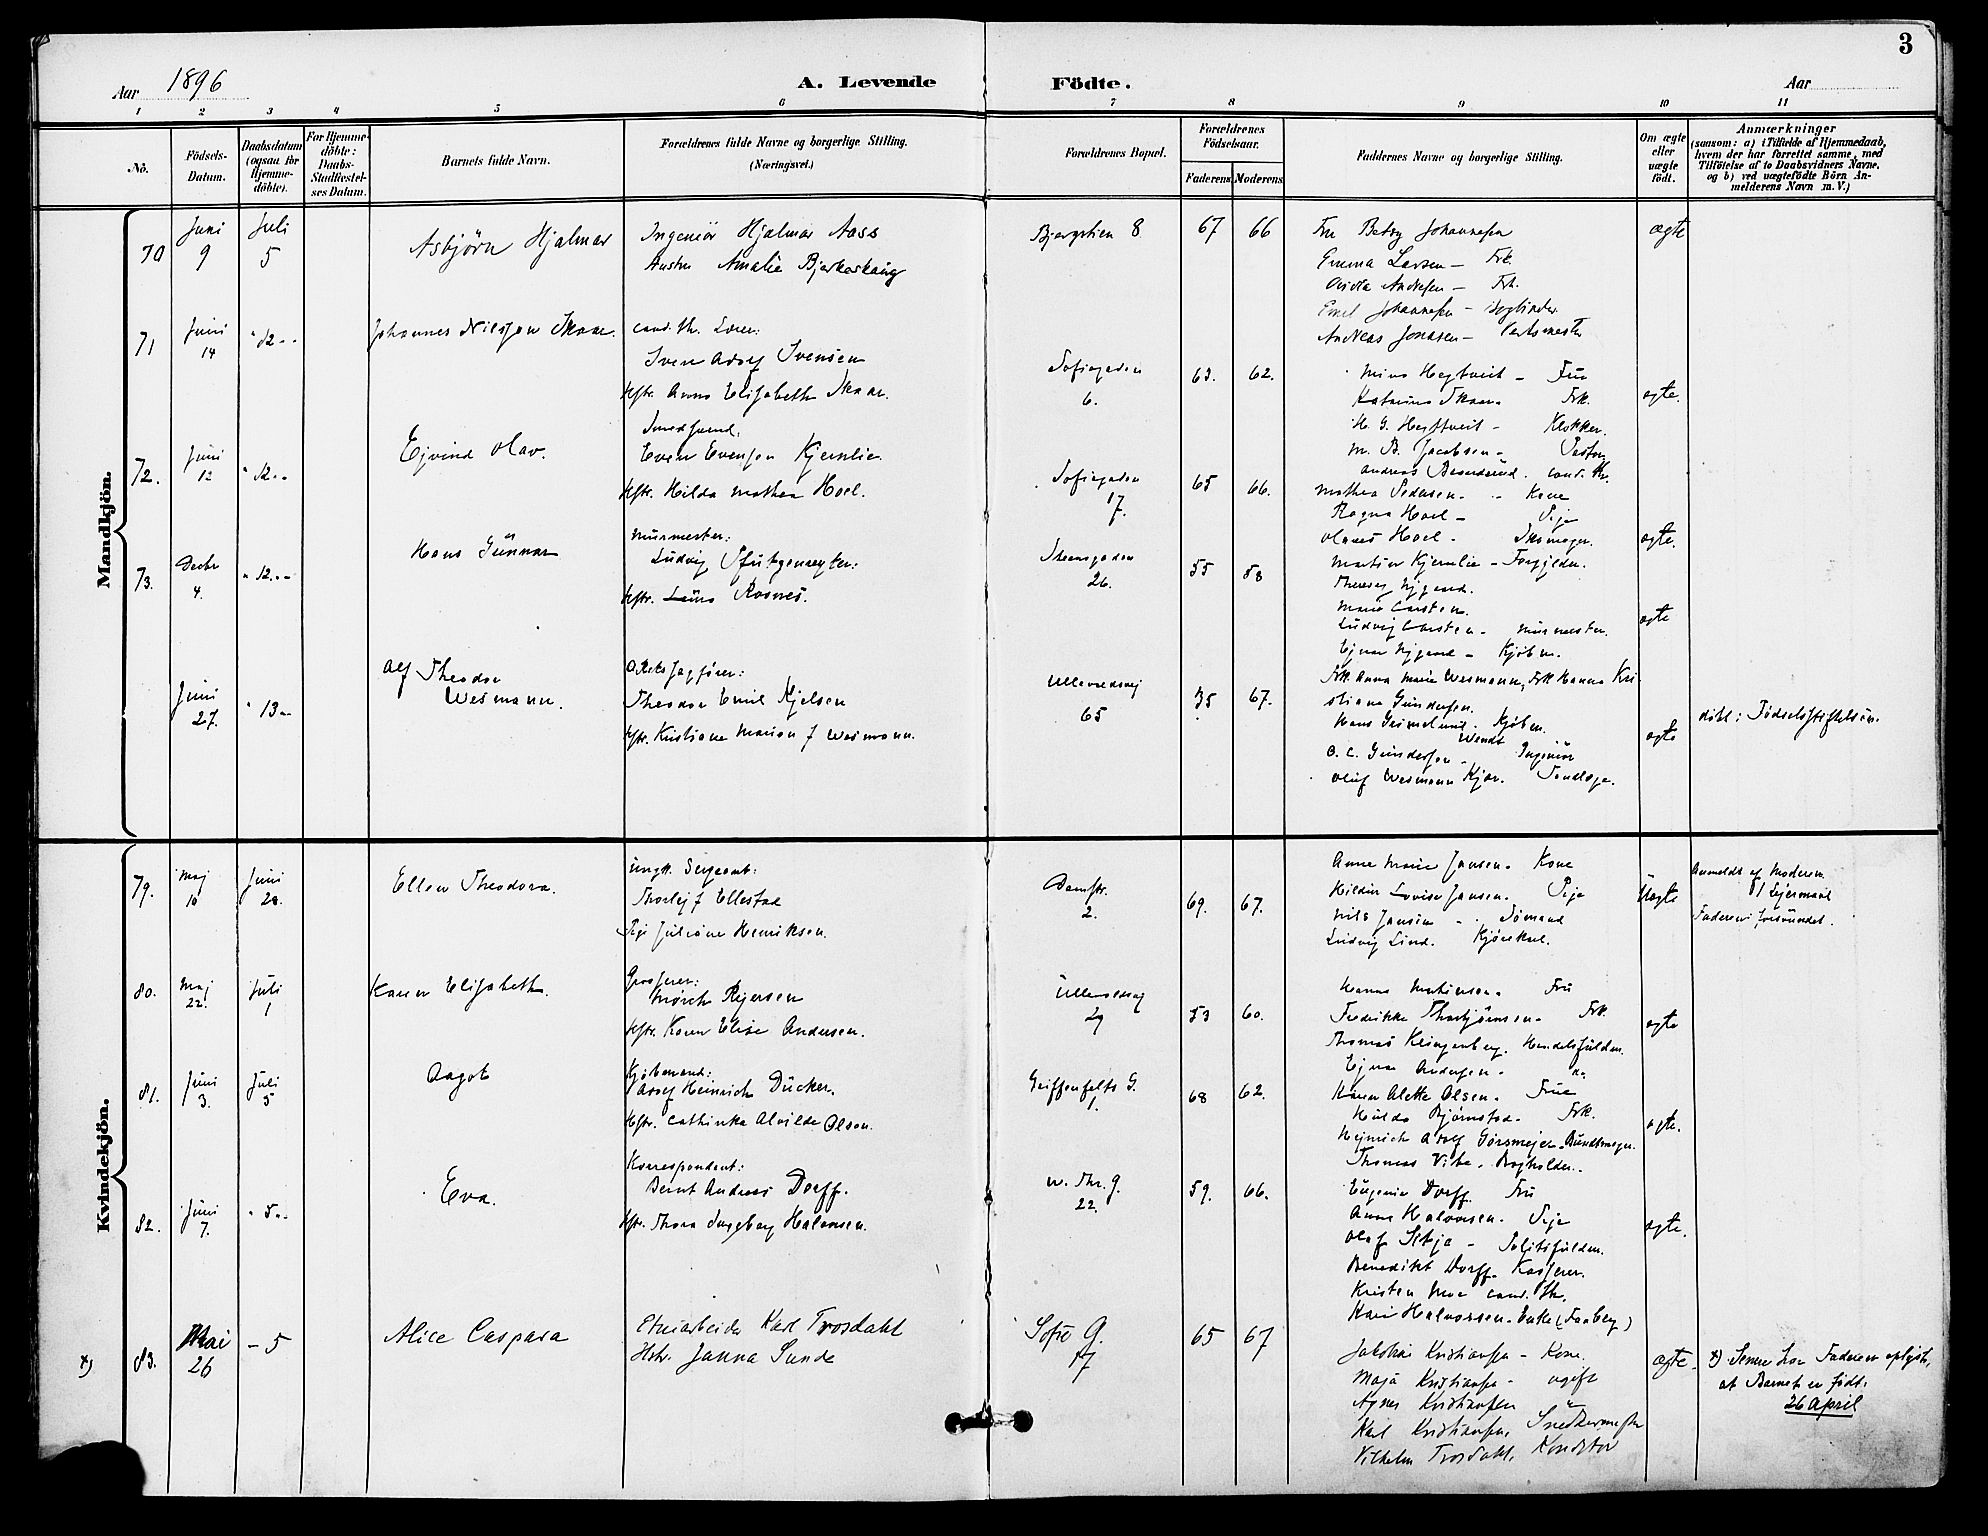 3
Aar 1896
A. Levende Födte.
Aar
1 2 3 4 5 6 7 8 9 10 11
No.
Födsels-Datum.
Daabsdatum (ogsaa for Hjemme-döbte).
For Hjemme-döbte: Daabs-Stadfæstel-ses Datum.
Barnets fulde Navn.
Forældrenes fulde Navne og borgerlige Stilling. (Næringsvei.)
Forældrenes Bopæl.
Forældrenes Födselsaar.
Faderens Moderens
Faddernes Navne og borgerlige Stilling.
Om ægte eller uægte födt.
Anmærkninger
(saasom: a) i Tilfælde af Hjemmedaab,
hvem der har forrettet samme, med
Tilföielse af to Daabsvidners Navne.
og b) ved uægtefödte Börn An-
melderens Navn m. V.)
Mandkjön.
70
Juni 9
Juli 5
Asbjörn Hjalmar
Ingeniör Hjalmar Aass
Hustru Amalie Bjerkeskaug
Bjergstien 8
67 66
Fru Betsy Johannesen
Emma Larsen – Frk.
Andresen – Frk.
Emil Johannesen – Bogbinder
Andreas Jonassen –
ægte
71
Juni 14
" 12 "
Johannes Nilssen Skaar.
cand. th. Lærer:
Sven Adolf Svensen
Hstr. Anna Elisabeth Skaar.
Sofiegaden 6.
63. 62.
Mina Hegtveit – Frue
Katrina Skaar Frk.
H. G. Hegtveit – Klokker.
M. B. Jacobsen – Pastor
Andreas cand. th.
ægte.
72.
Juni 12
" 12 "
Ejvind Olav.
Smedsvend.
Even Evensen Kjernlie
Hstr. Hilda Mathea Hoel.
Sofiegaden 17.
65 66.
Mathea Pedersen – Kone
Ragna Hoel – Pige
Olaves Hoel – Skomager.
Martin Kjernlie – Forgylder.
ægte.
73.
Decbr 4.
" 12 "
Hans Gunnar
Murmester:
Ludvig Pfutzenreuter:
Hstr. Laura Rosnes.
Thereses gaden 26.
55 58
Theresa Nygaard.
Marie Carsten.
Ludvig Carsten – Murmester.
Ejnar Nygaard – Kjøbm.
ægte
Juni 27.
" 13 "
Alf Theodor Wesmann.
O.Retssagfører:
Theodor Emil Kjelsen
Hstr. Kristiane Marion f Wesmann.
Ullevoldsvej 65
35 67.
Frk Anna Marie Wesmann, Frk Hanna Kri-
stiane Gundersen.
Hans Grimelund. Kjøbm.
O. C. Gundersen – Wendt Ingeniör
Oluf Wesmann Kjær. Tandlæge.
ægte
döbt i Fødselsstiftelsen.
Kvindekjön.
79.
Maj 10
Juni 28.
Ellen Theodora.
ungk. Sergeant:
Thorleif Ellestad
Pige Juliane Henriksen.
Damstr. 2.
69. 67.
Anne Marie Jansen – Kone
Hilda Lovise Jansen. Pige
Nils Jansen – Sømand
Ludvig Lind. Kjørekarl.
Uægte
Anmeldt af Moderen
1 Lejermaal
Faderen forsvundet.
80.
Maj 22.
Juli 1
Karen Elisabeth.
Grosserer:
Mørch Rejersen
Hstr. Karen Elise Andersen.
Ullevoldsvej 29
53 60.
Hanna Mathiesen. Fru
Fredrikke Thorbjørnsen – Frk.
Thomas Klingenberg. Handelsfuldm.
Ejnar Andersen –
ægte
81.
Juni 3.
Juli 5
Aagot
Kjøbmand:
Adolf Heinrich Dücker.
Hstr. Cathinka Alvilde Olsen.
Griffenfelts G. 1.
68 62.
Karen Alette Olsen. Frue
Hulda Bjørnstad – Frk.
Hejnrich Adolf Görsmejer – Bundtmager.
Thomas Vibe – Bogholder.
ægte.
82.
Juni 7.
" 5 "
Eva.
Korrespondent:
Bernt Andreas Dorff.
Hstr. Thora Ingeborg Halvorsen.
W. Thr. g. 22.
59. 66.
Eugenie Dorff. Fru
Anna Halvorsen. Pige
Olaf Sitje – Politifuldm.
Benedikt Dorff – Kasserer.
Kristen Moe cand. th.
Kari Halvorsen. Enke (Faaberg)
ægte.
x) 83.
Mai 26
– 5
Alice Caspara
Etuiarbeider Karl Trosdahl
Hstr. Janna Sunde
Sofie G. 17
65 67
Jakobine Kristiansen – Kone.
Maja Kristiansen – ugift
Agnes Kristiansen "
Karl Kristiansen, Snedkermester
Vilhelm Trosdahl, Konditor
ægte.
x) Senere har Faderen oplyst,
at Barnet er født
26 April